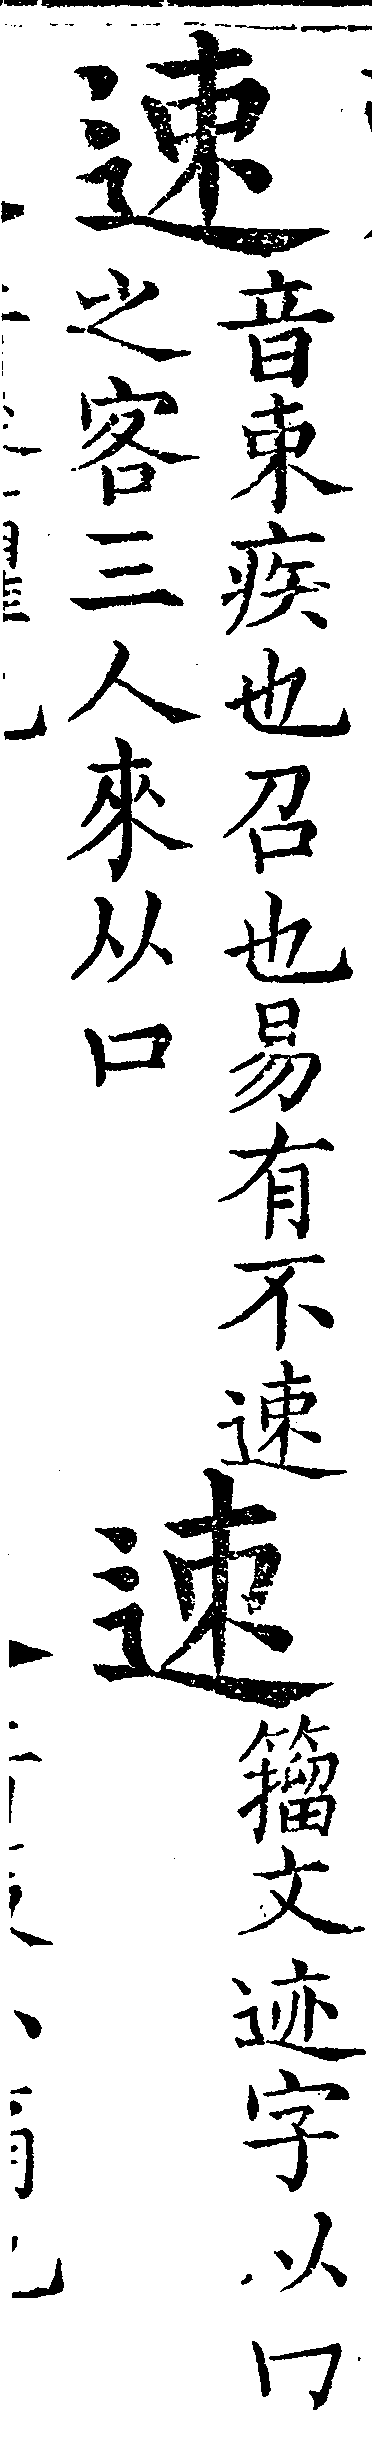 速
音束疾也召也易有不速
之客三人來从口
𨒪
籀文迹字从冂